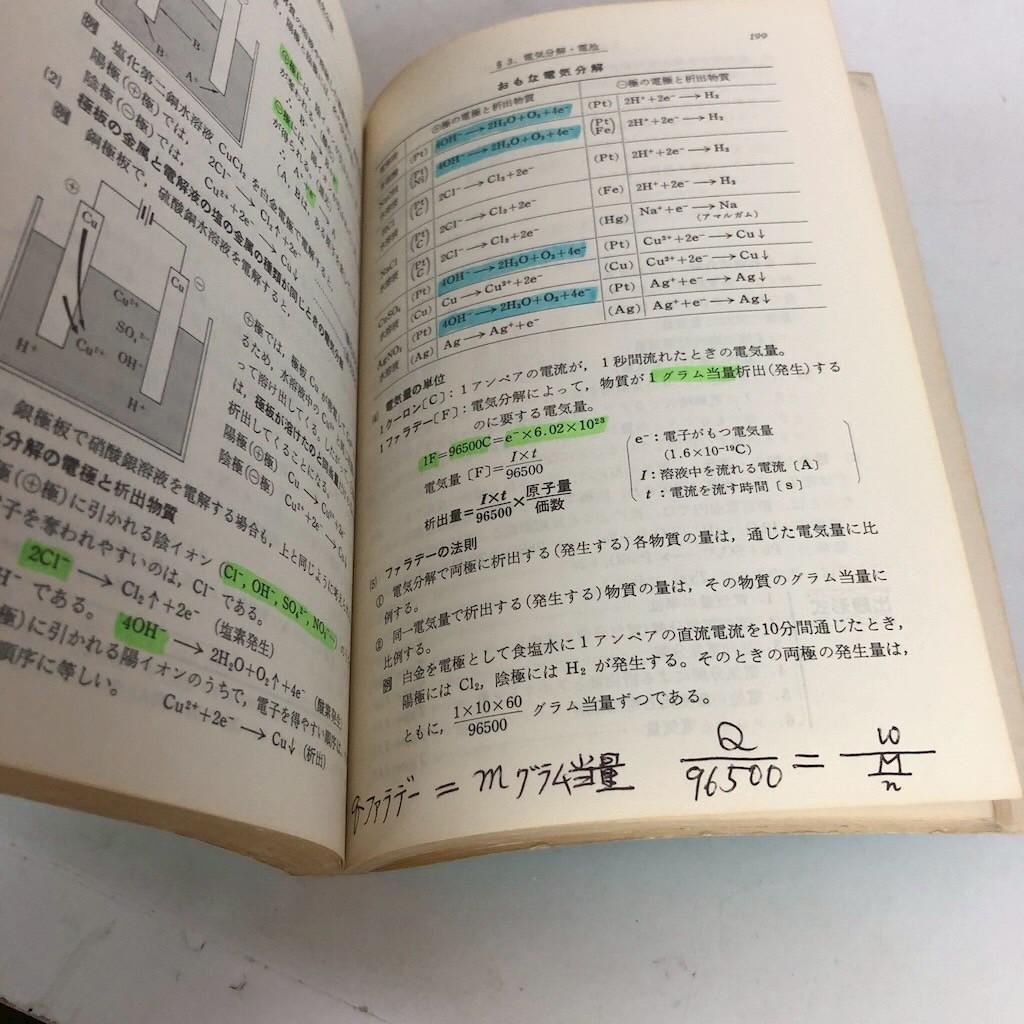 例 塩化第二銅水溶液 CuCl₂ を白金電極で電解すると,
陽極(⊕極)では, 2Cl⁻ → Cl₂↑+2e⁻
陰極(⊖極)では, Cu²⁺+2e⁻ → Cu↓
(2) 極板の金属と電解液の塩の金属の種類が同じときの電気分解
例 銅極板で, 硫酸銅水溶液を電解すると,
⊕
Cu
Cu
⊖
Cu²⁺
SO₄²⁻
Cu²⁺
OH⁻
H⁺
H⁺
⊕極では, 極板 Cu
るため, 水溶液中の Cu²⁺
って溶け出してくる。
は, 極板が溶けたのと同量
析出してくることになる。
陽極(⊕極) Cu → Cu²⁺+2e⁻
陰極(⊖極) Cu²⁺+2e⁻ → Cu
銀極板で硝酸銀溶液を電解する場合も, 上と同じように
分解の電極と析出物質
極(⊕極)に引かれる陰イオン (Cl⁻, OH⁻, SO₄²⁻, NO₃⁻
子を奪われやすいのは, Cl⁻ である。
2Cl⁻ → Cl₂↑+2e⁻ (塩素発生)
H⁻ である。 4OH⁻ → 2H₂O+O₂↑+4e⁻ (酸素発生)
極)に引かれる陽イオンのうちで, 電子を得やすい順序は,
順序に等しい。
Cu²⁺+2e⁻ → Cu↓ (析出)
§3. 電気分解・電池
199
おもな電気分解
⊕極の電極と析出物質 ⊖極の電極と析出物質
(Pt) 4OH⁻ → 2H₂O+O₂+4e⁻ (Pt) 2H⁺+2e⁻ → H₂
(Pt Ni) 4OH⁻ → 2H₂O+O₂+4e⁻ (Pt Fe) 2H⁺+2e⁻ → H₂
(Pt C) 2Cl⁻ → Cl₂+2e⁻ (Pt) 2H⁺+2e⁻ → H₂
NaCl 水溶液 (Pt C) 2Cl⁻ → Cl₂+2e⁻ (Fe) 2H⁺+2e⁻ → H₂
(Pt C) 2Cl⁻ → Cl₂+2e⁻ (Hg) Na⁺+e⁻ → Na (アマルガム)
CuSO₄ 水溶液 (Pt) 4OH⁻ → 2H₂O+O₂+4e⁻ (Pt) Cu²⁺+2e⁻ → Cu↓
(Cu) Cu → Cu²⁺+2e⁻ (Cu) Cu²⁺+2e⁻ → Cu↓
AgNO₃ 水溶液 (Pt) 4OH⁻ → 2H₂O+O₂+4e⁻ (Pt) Ag⁺+e⁻ → Ag↓
(Ag) Ag → Ag⁺+e⁻ (Ag) Ag⁺+e⁻ → Ag↓
電気量の単位
1クーロン〔C〕: 1アンペアの電流が, 1秒間流れたときの電気量。
1ファラデー〔F〕: 電気分解によって, 物質が1グラム当量析出(発生)する
のに要する電気量。
1F=96500C=e⁻×6.02×10²³
電気量〔F〕= I×t / 96500
析出量= I×t / 96500 × 原子量 / 価数
e⁻: 電子がもつ電気量
(1.6×10⁻¹⁹C)
I: 溶液中を流れる電流〔A〕
t: 電流を流す時間〔s〕
(5) ファラデーの法則
① 電気分解で両極に析出する(発生する)各物質の量は, 通じた電気量に比
例する。
② 同一電気量で析出する(発生する)物質の量は, その物質のグラム当量に
比例する。
例 白金を電極として食塩水に1アンペアの直流電流を10分間通じたとき,
陽極には Cl₂, 陰極には H₂ が発生する。そのときの両極の発生量は,
ともに, 1×10×60 / 96500 グラム当量ずつである。
ファラデー = mグラム当量 Q / 96500 = w / (M / n)